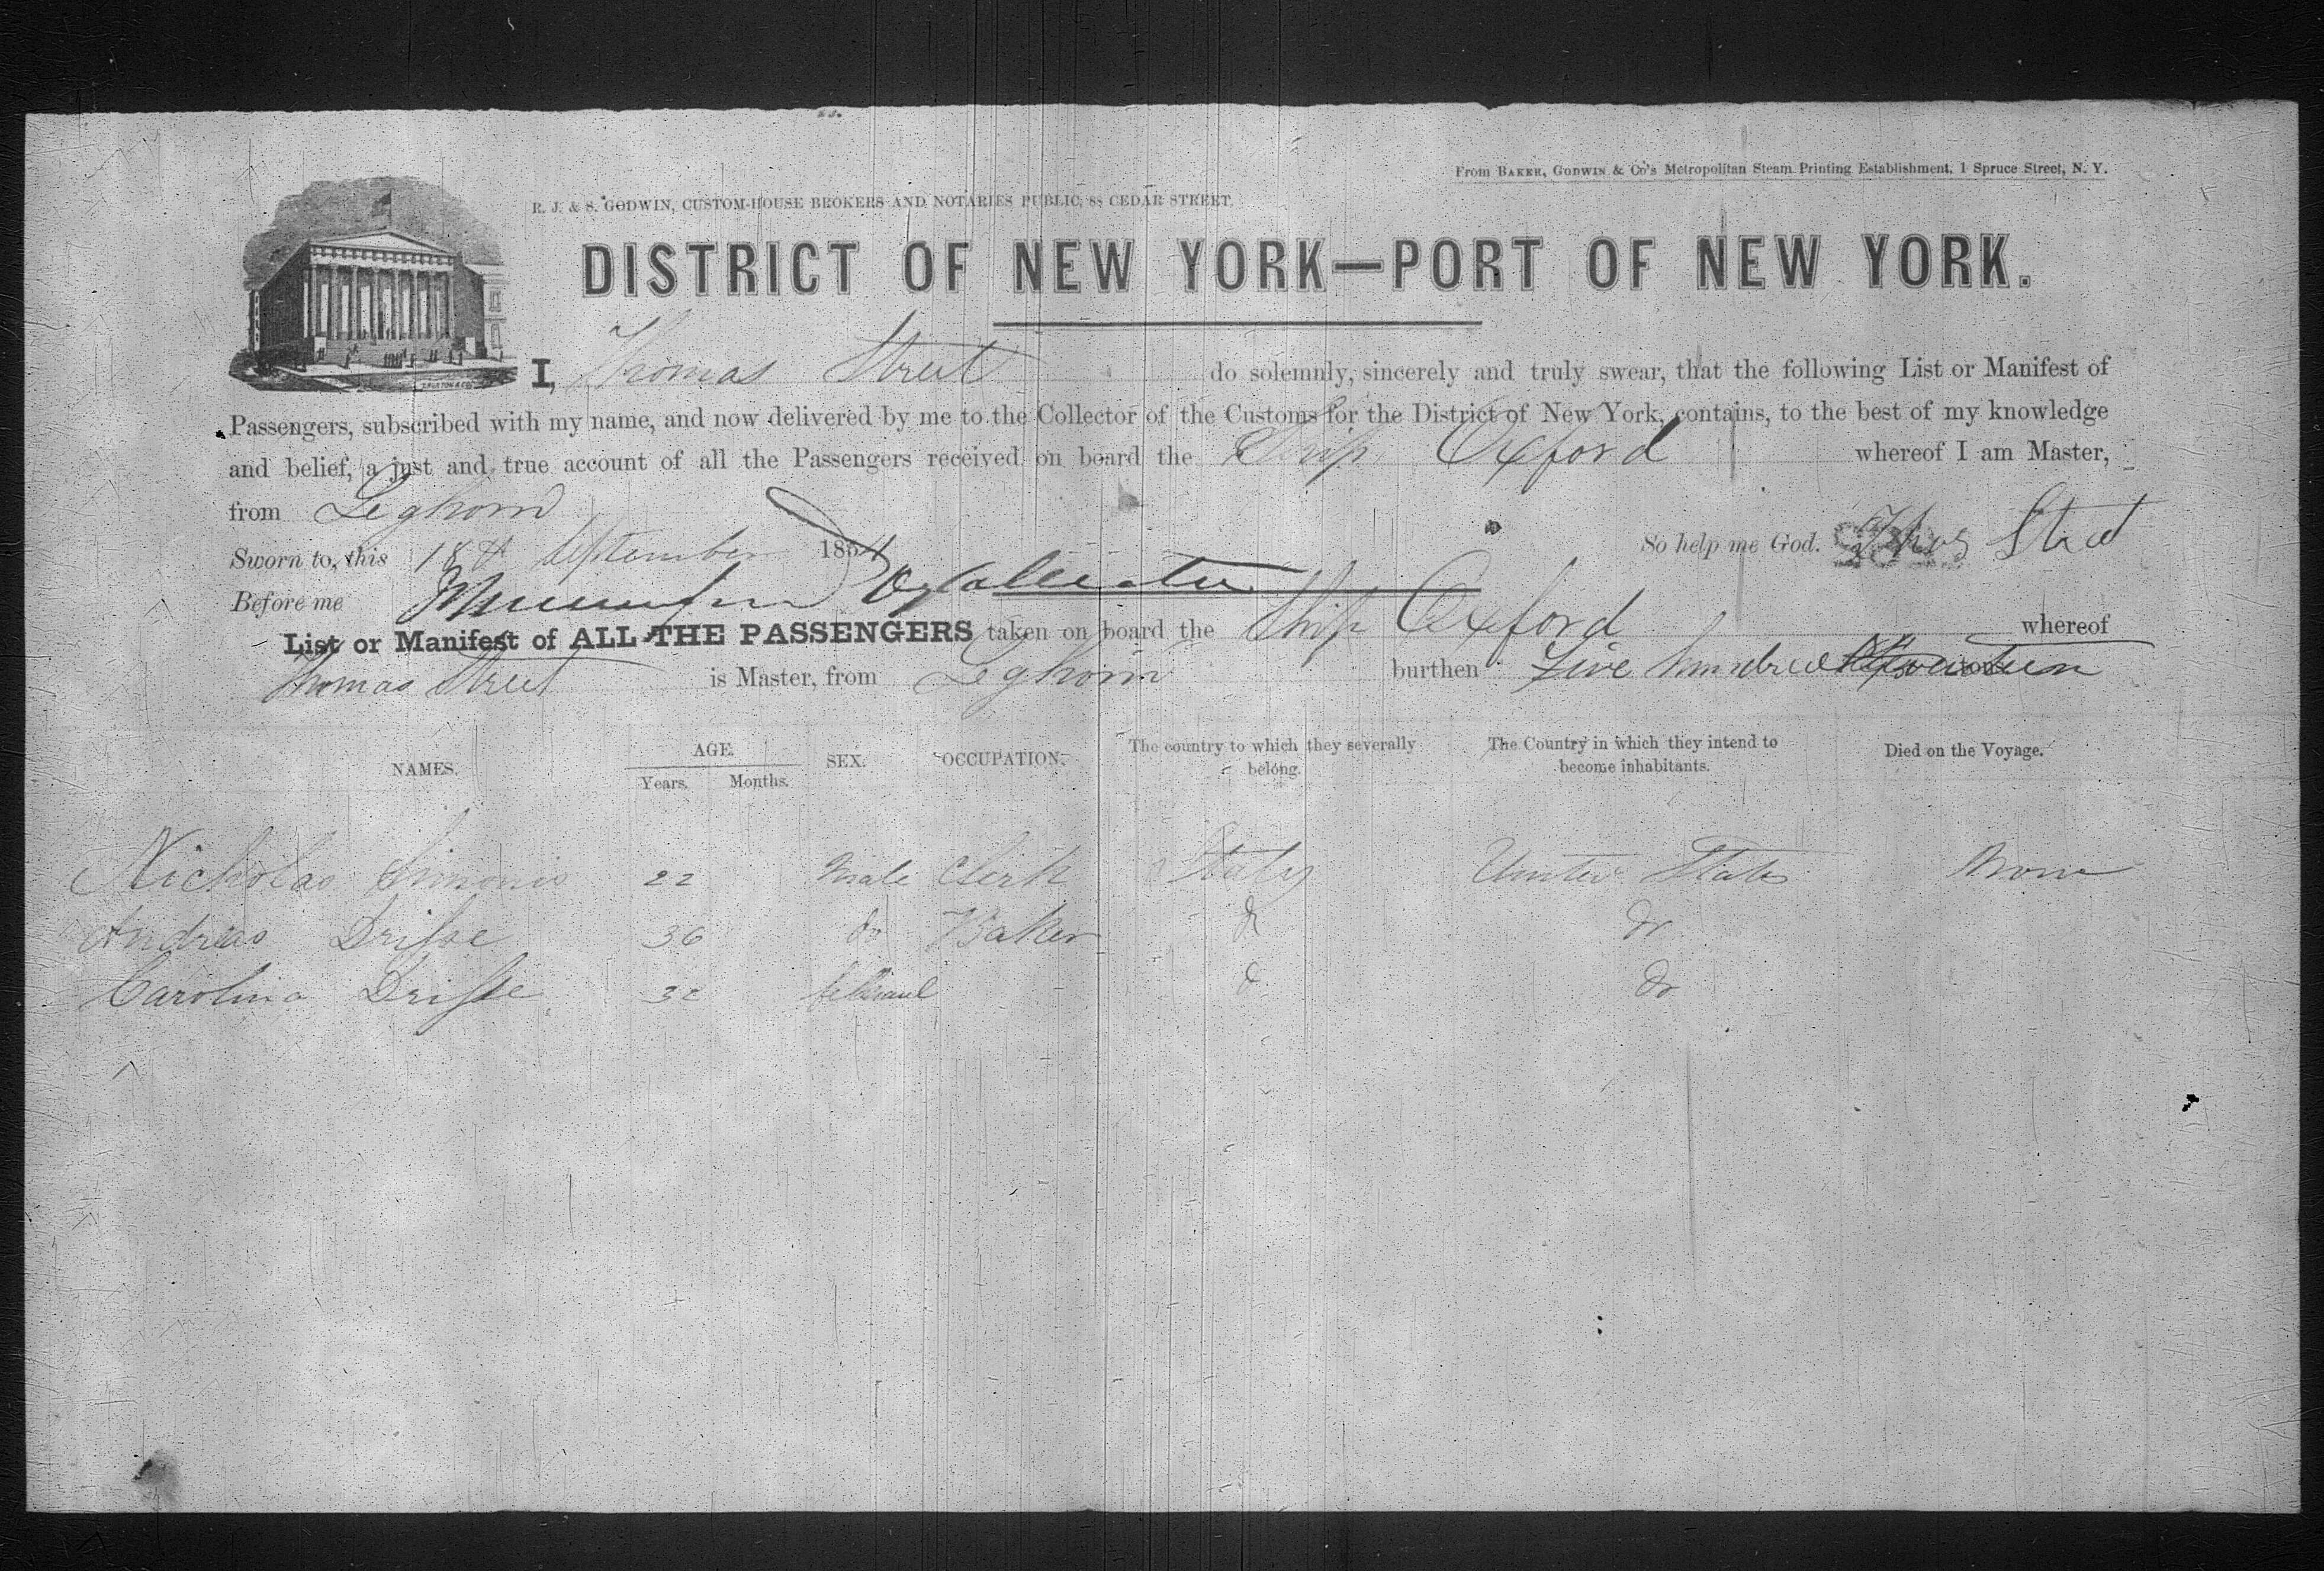 From BAKER, GODWIN & Co's Metropolitan Steam Printing Establishment, 1 Spruce Street, N. Y.
R. J. & S. GODWIN, CUSTOM-HOUSE BROKERS AND NOTARIES PUBLIC, 88 CEDAR STREET.
DISTRICT OF NEW YORK—PORT OF NEW YORK.
I, Thomas Street do solemnly, sincerely and truly swear, that the following List or Manifest of
Passengers, subscribed with my name, and now delivered by me to the Collector of the Customs for the District of New York, contains, to the best of my knowledge
and belief, a just and true account of all the Passengers received on board the Ship Oxford whereof I am Master,
from Leghorn
Sworn to, this 18th September 1854 So help me God. Thos Street
Before me
List or Manifest of ALL THE PASSENGERS taken on board the Ship Oxford whereof
Thomas Street is Master, from Leghorn burthen Five hundred tons
NAMES. AGE. SEX. OCCUPATION. The country to which they severally belong. The Country in which they intend to become inhabitants. Died on the Voyage.
Years. Months.
Nicholas Simonis 22 Male Clerk Italy United States None
Andreas Drisse 36 do Baker do do
Carolina Drisse 32 do do